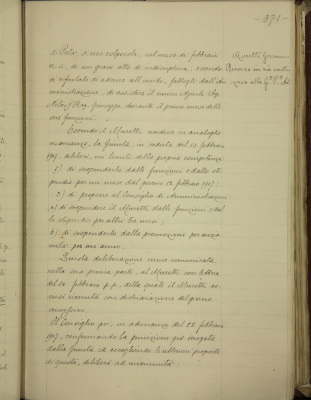 - 371 -
di Pavia, si rese colpevole, nel mese di febbraio
di un grave atto di indisciplina, essendo
si rifiutato di aderire all'invito, fattogli dall'Am
ministrazione, di assistere il nuovo Agente Sig.
Rag. Giuseppe, durante il primo mese delle
sue funzioni.
Essendo il Moretti recidivo in analoghe
mancanze, la Giunta, in seduta del 13 febbraio
1907, deliberò, nei limiti della propria competenza:
1) di sospenderlo dalle funzioni e dallo sti
pendio per un mese dal giorno 14 febbraio 1907;
2) di proporre al Consiglio di Amministrazione:
a) di sospendere il Moretti dalle funzioni e dal
lo stipendio per altri tre mesi;
b) di sospenderlo dalla promozione per anzia
nità per un anno.
Questa deliberazione venne comunicata,
nella sua prima parte, al Moretti con lettera
del 14 febbraio p.p., della quale il Moretti ac
cusò ricevuta con dichiarazione del giorno
successivo.
Il Consiglio poi, in adunanza del 28 febbraio
1907, confermando la punizione già irrogata
dalla Giunta ed accogliendo le ulteriori proposte
di questa, deliberò ad unanimità:
Moretti Giovanni
Ricorso in via
alla